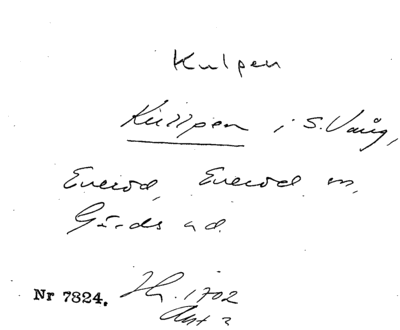 Kulpen
Küllpen i S. Vång,
Everöd, Everöd sn,
Gärds hd.
Nr 7824. Lh. 1702
Akt 2